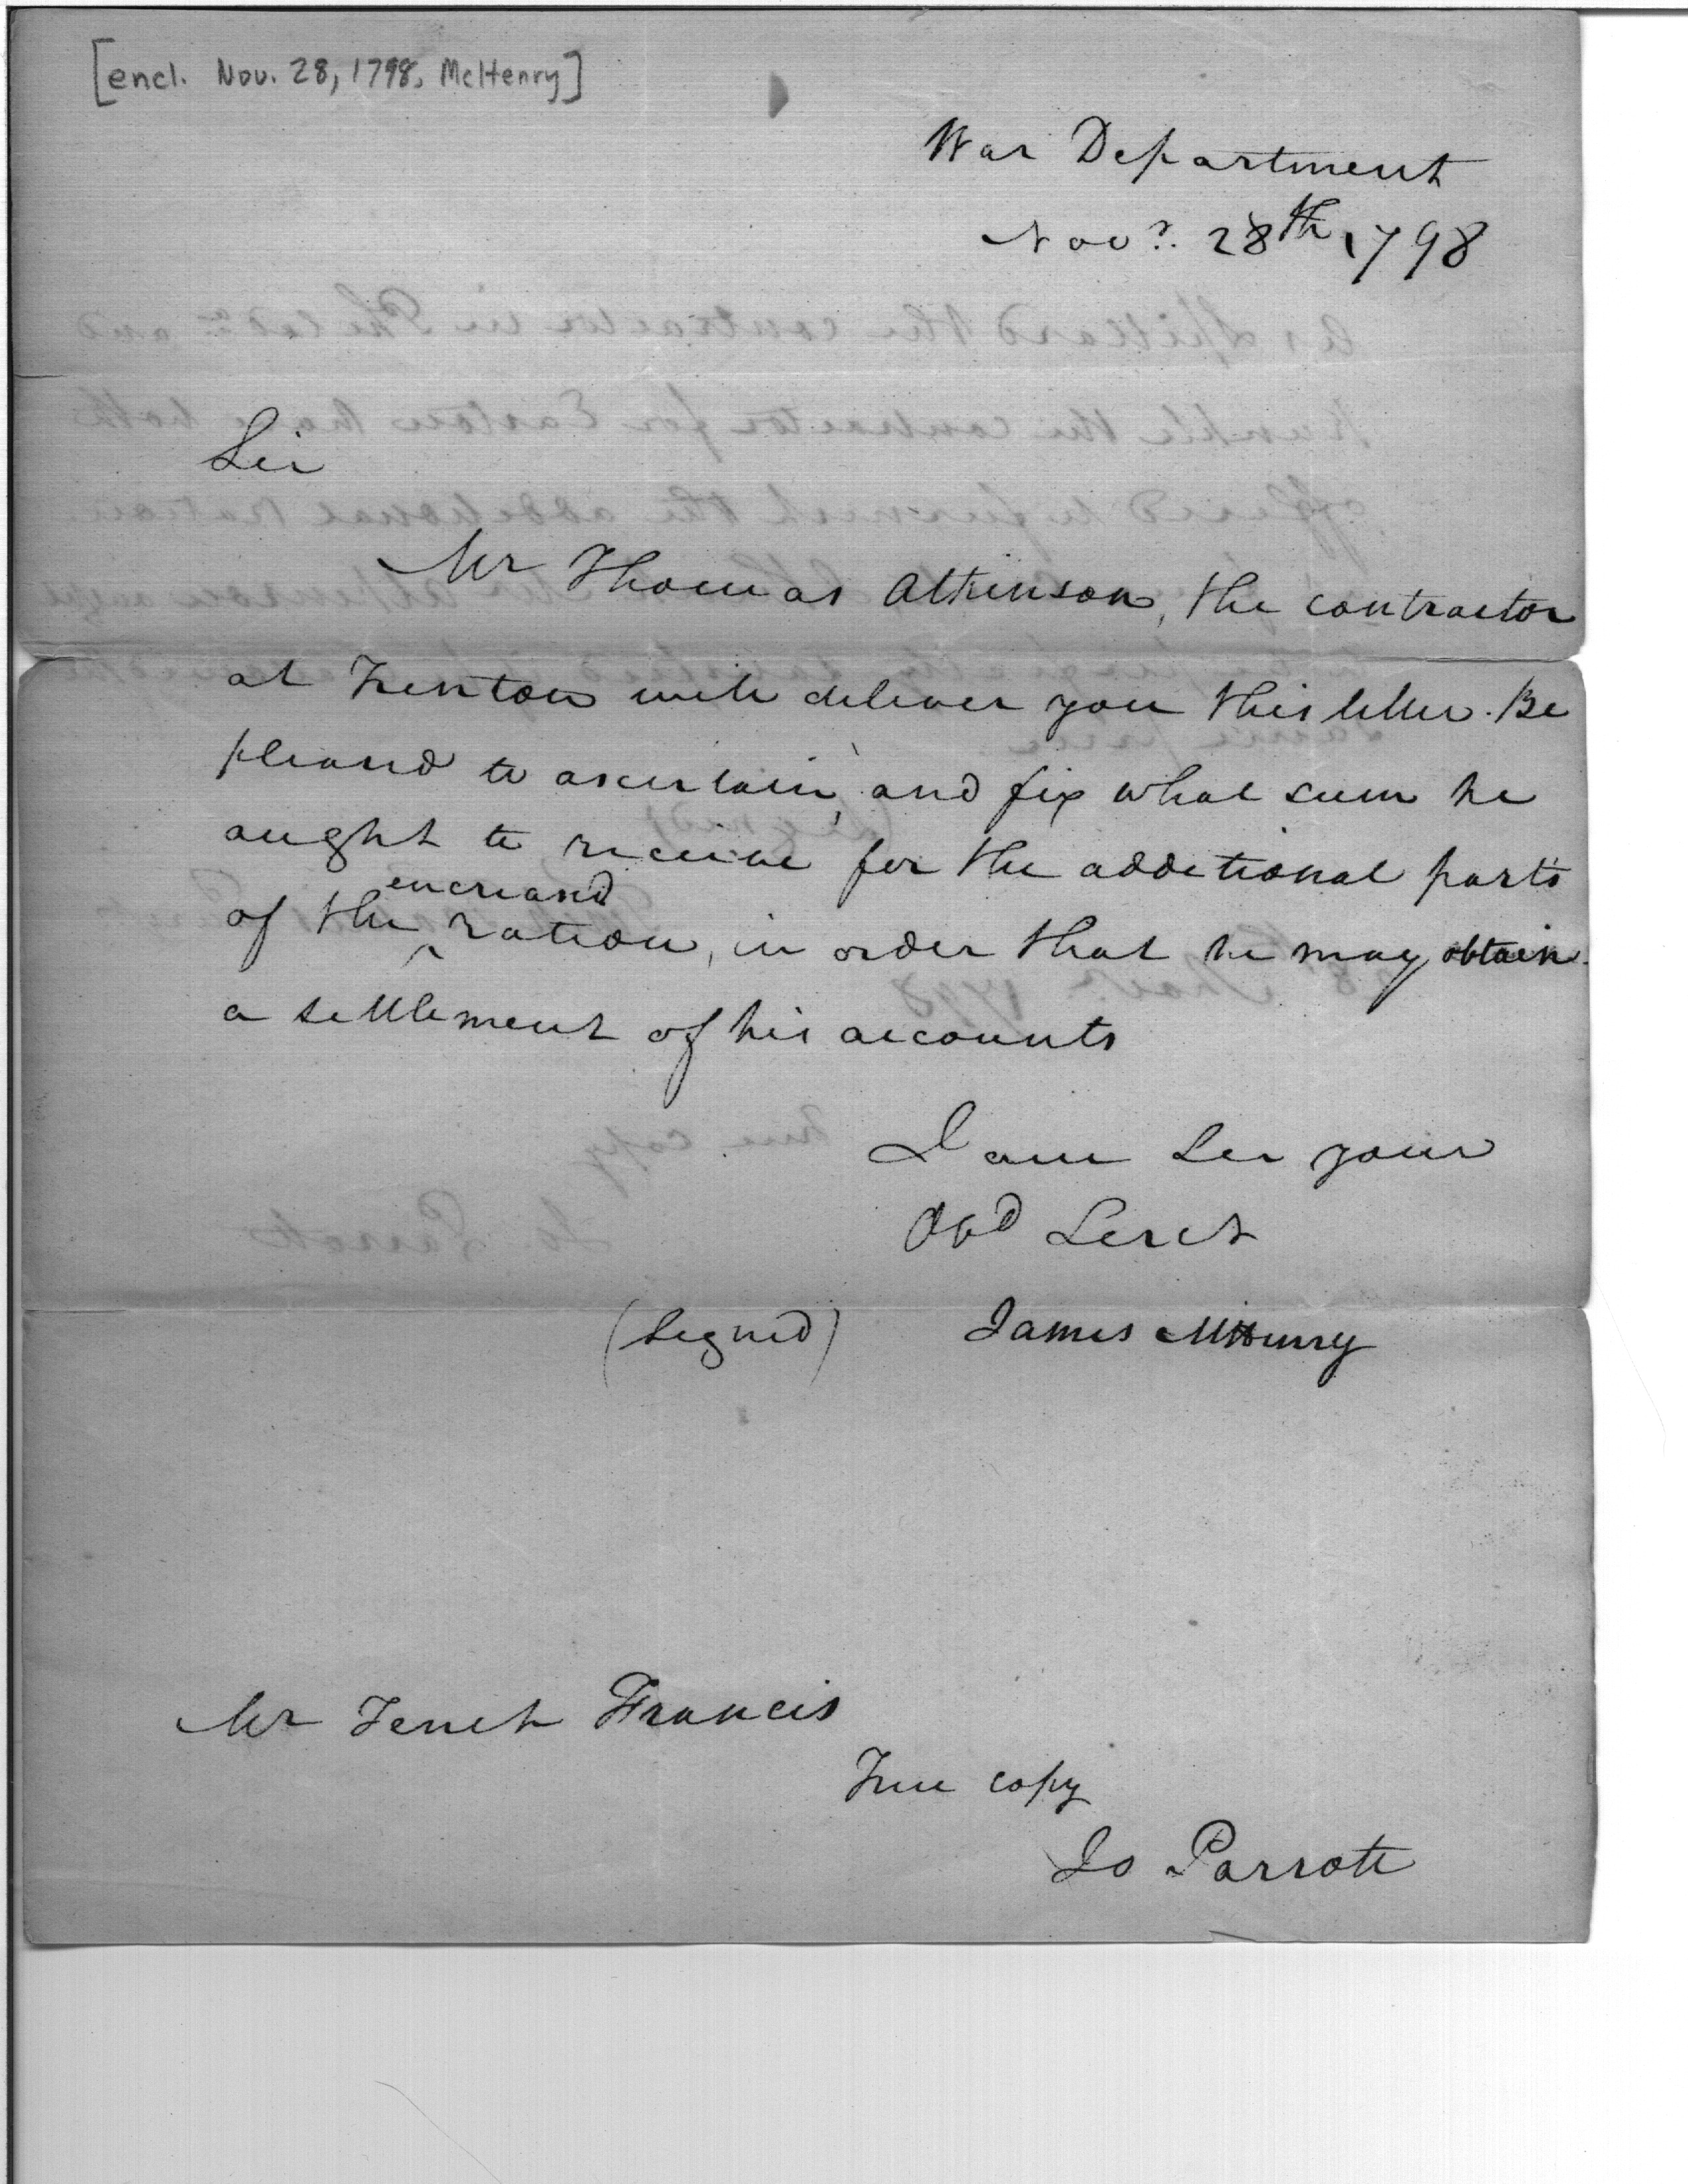 [encl. Nov. 28, 1798, McHenry]
War Department
Novr. 28th 1798
Sir
Mr Thomas Atkinson, the contractor
at Trenton will deliver you this letter. Be
pleased to ascertain, and fix what sum he
ought to receive for the additional parts
of the encreased ration, in order that he may obtain
a settlement of his accounts
I am Sir your
Obd Servt
(Signed) James McHenry
Mr Tench Francis
True copy
Jo Parrott